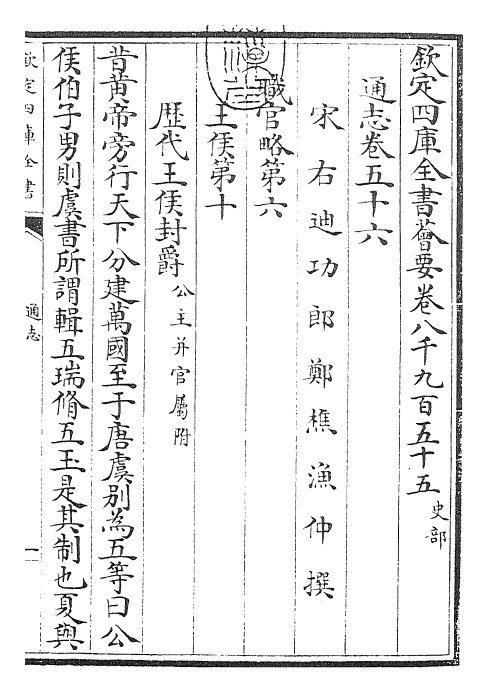 欽定四庫全書薈要卷八千九百五十五 史部
通志卷五十六
宋右迪功郎鄭樵漁仲撰
職官略第六
王侯第十
歴代王侯封爵 公主并官屬附
昔黄帝旁行天下分建萬國至于唐虞别為五等曰公
侯伯子男則虞書所謂輯五瑞脩五玉是其制也夏與
欽定四庫全書
通志
一